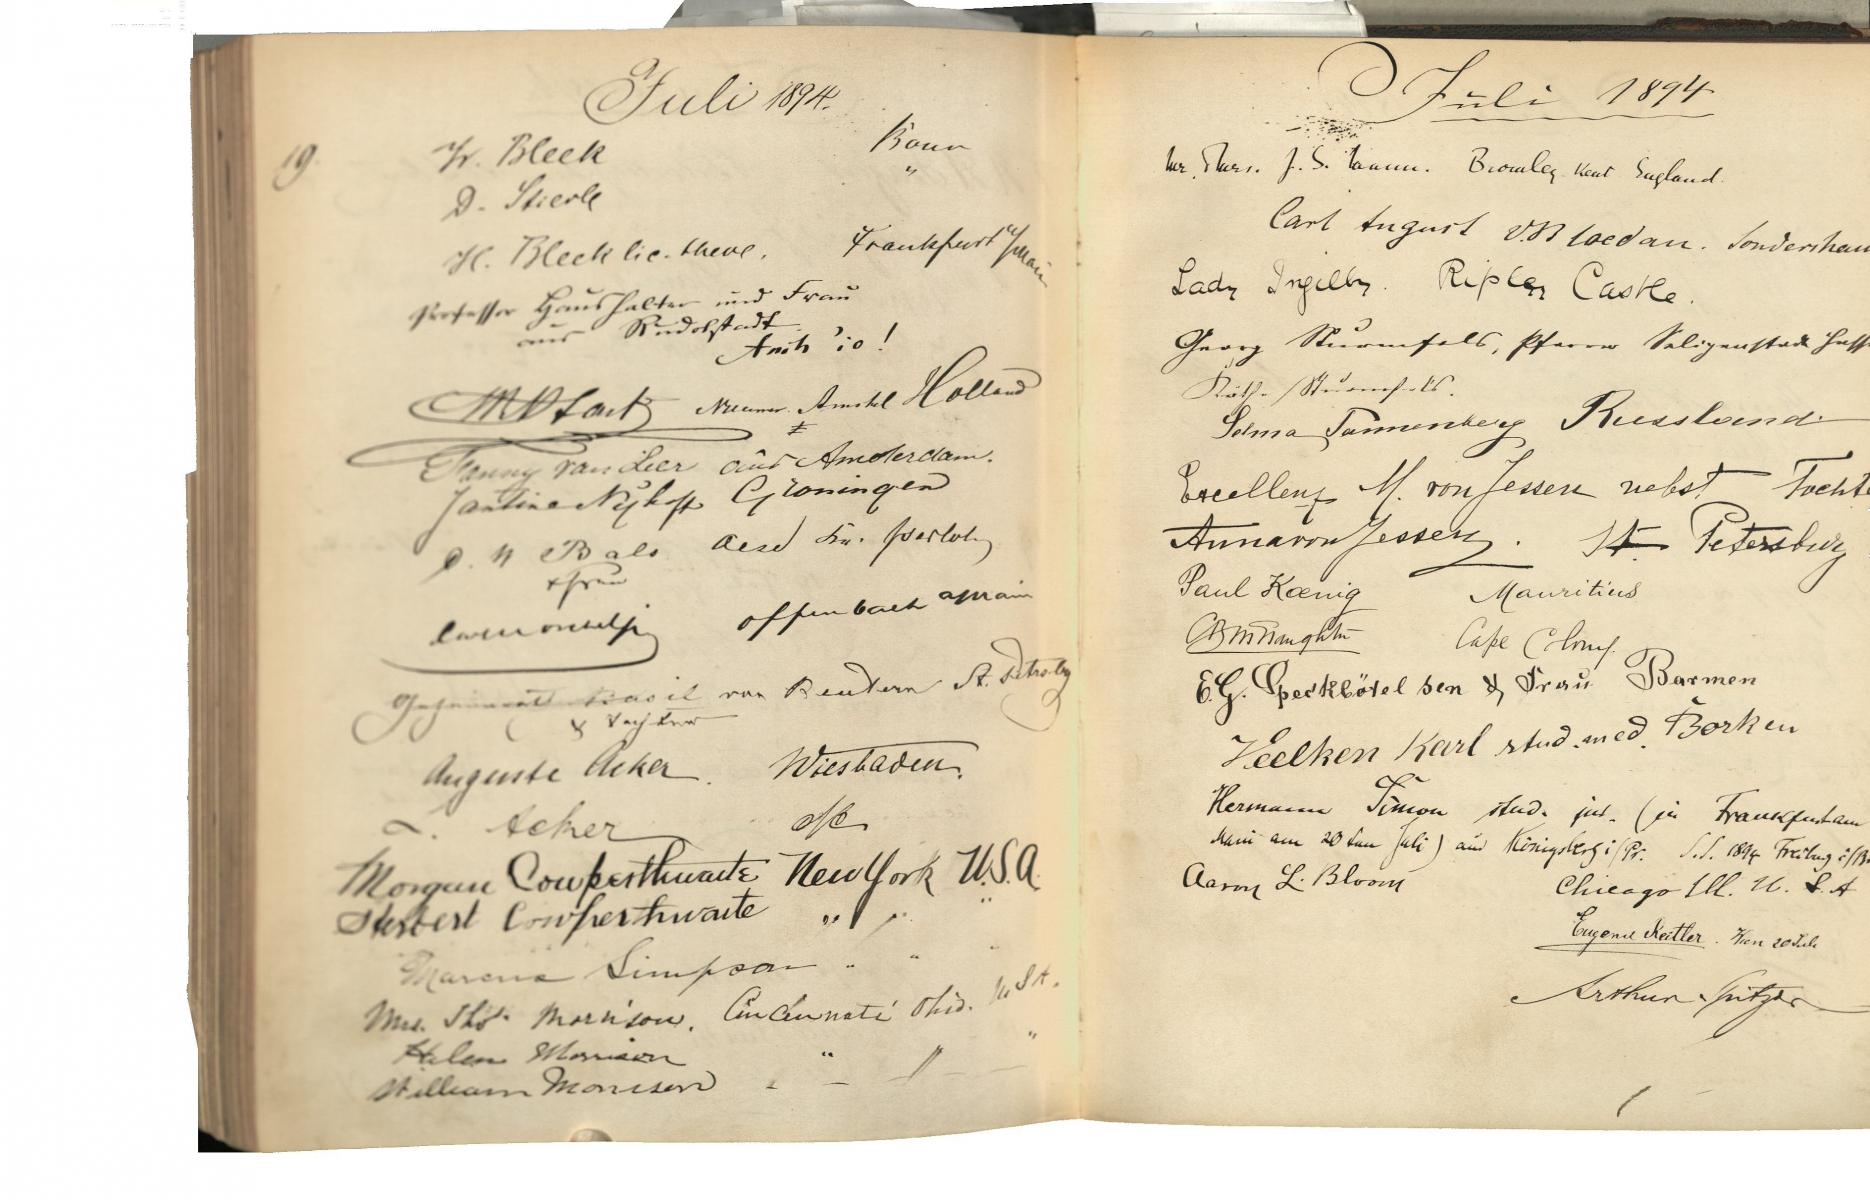 Juli 1894.
19.
Fr. Bleek Bonn
D. Stierle "
H. Bleek lic. theol. Frankfurt a/Main
Professor Haushalter und Frau
aus Rudolstadt
Auch 'io!
Amstel Holland
Fanny van Leer aus Amsterdam.
Jantina Nyhoff Groningen
& Frau
Offenbach a Main
von Reutern St. Petersbg
& Tochter
Auguste Acker. Wiesbaden.
L. Acker
Morgan Cowperthwaite New York U.S.A.
Herbert Cowperthwaite " " "
Marcus Simpson " " "
Mrs. Thos. Morrison. Cincinnati Ohio. U.S.A.
Helen Morrison " " "
William Morrison
Juli 1894
Mr. & Mrs. J. S. Mann. Bromley Kent England.
Carl August v. Bloedau. Sondershau
Lady Ingilby. Ripley Castle.
Georg Sturmfels, Pfarrer Seligenstadt Hess
Käth. Sturmfels.
Selma Tannenberg Russland
Excellenz M. von Jessen nebst Tochte
Anna von Jessen. St. Petersburg
Paul Kœnig Mauritius
Cape Colony.
E.G. Speckbötel sen & Frau Barmen
Veelken Karl stud. med. Borken
Hermann Simon stud. jur. (in Frankfurt am
Main am 20ten Juli) aus Königsberg i/Pr. S.S. 1894 Freiburg i/Ba
Aaron L. Bloom Chicago Ill. U.S.A
Eugenie Kettler. 20 Juli
Arthur Spitzer